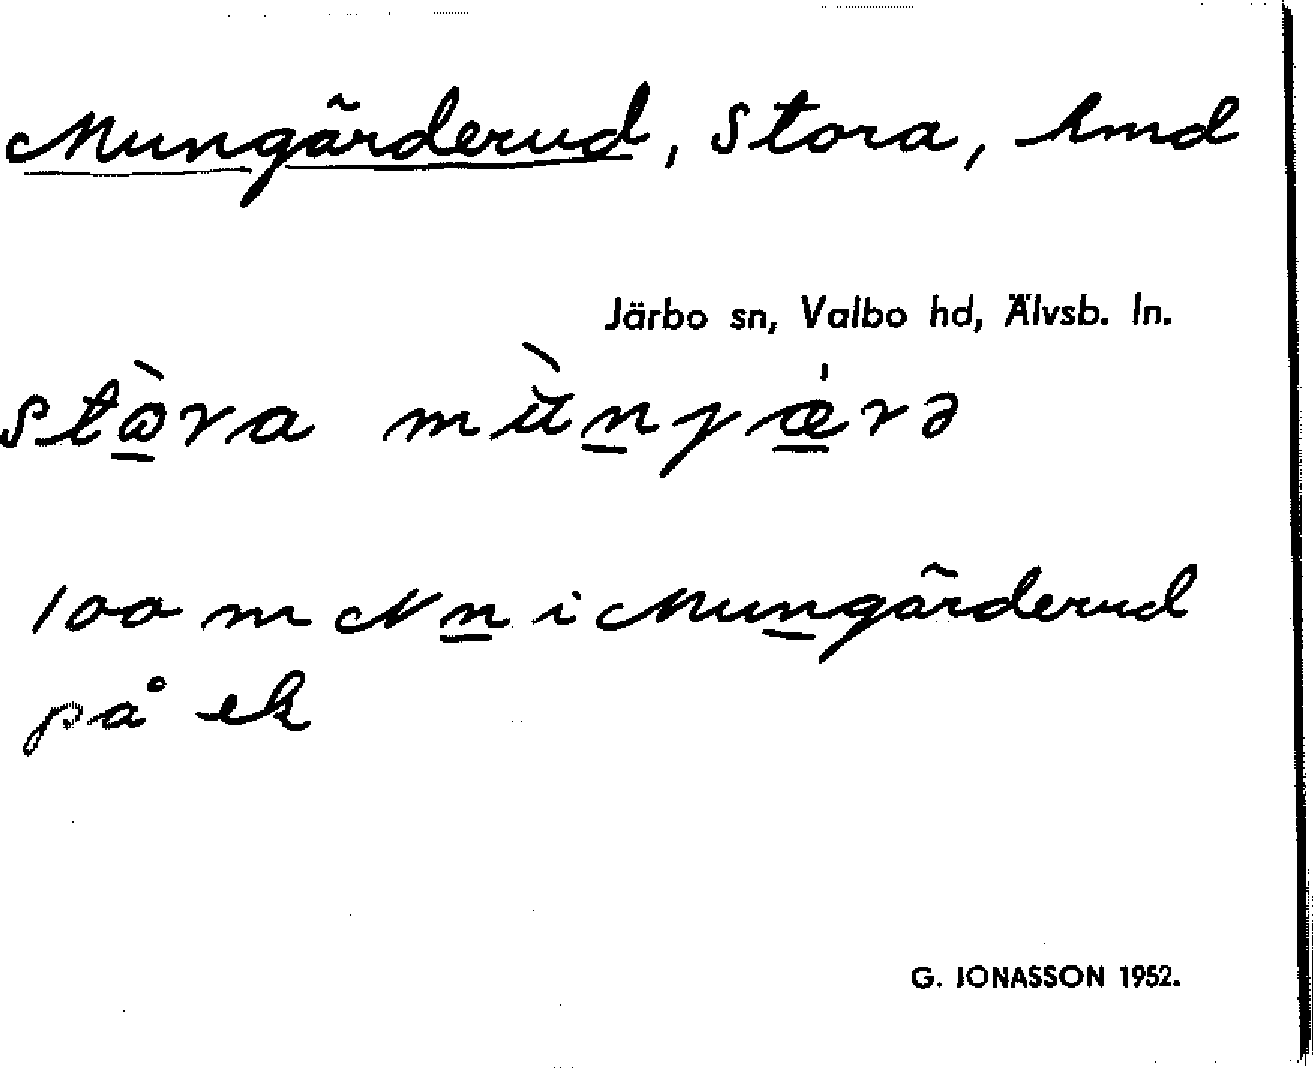 Mungärderud, Stora, hmd
Järbo sn, Valbo hd, Älvsb. ln.
100 m N n i Mungärderud
på ek
G. JONASSON 1952.